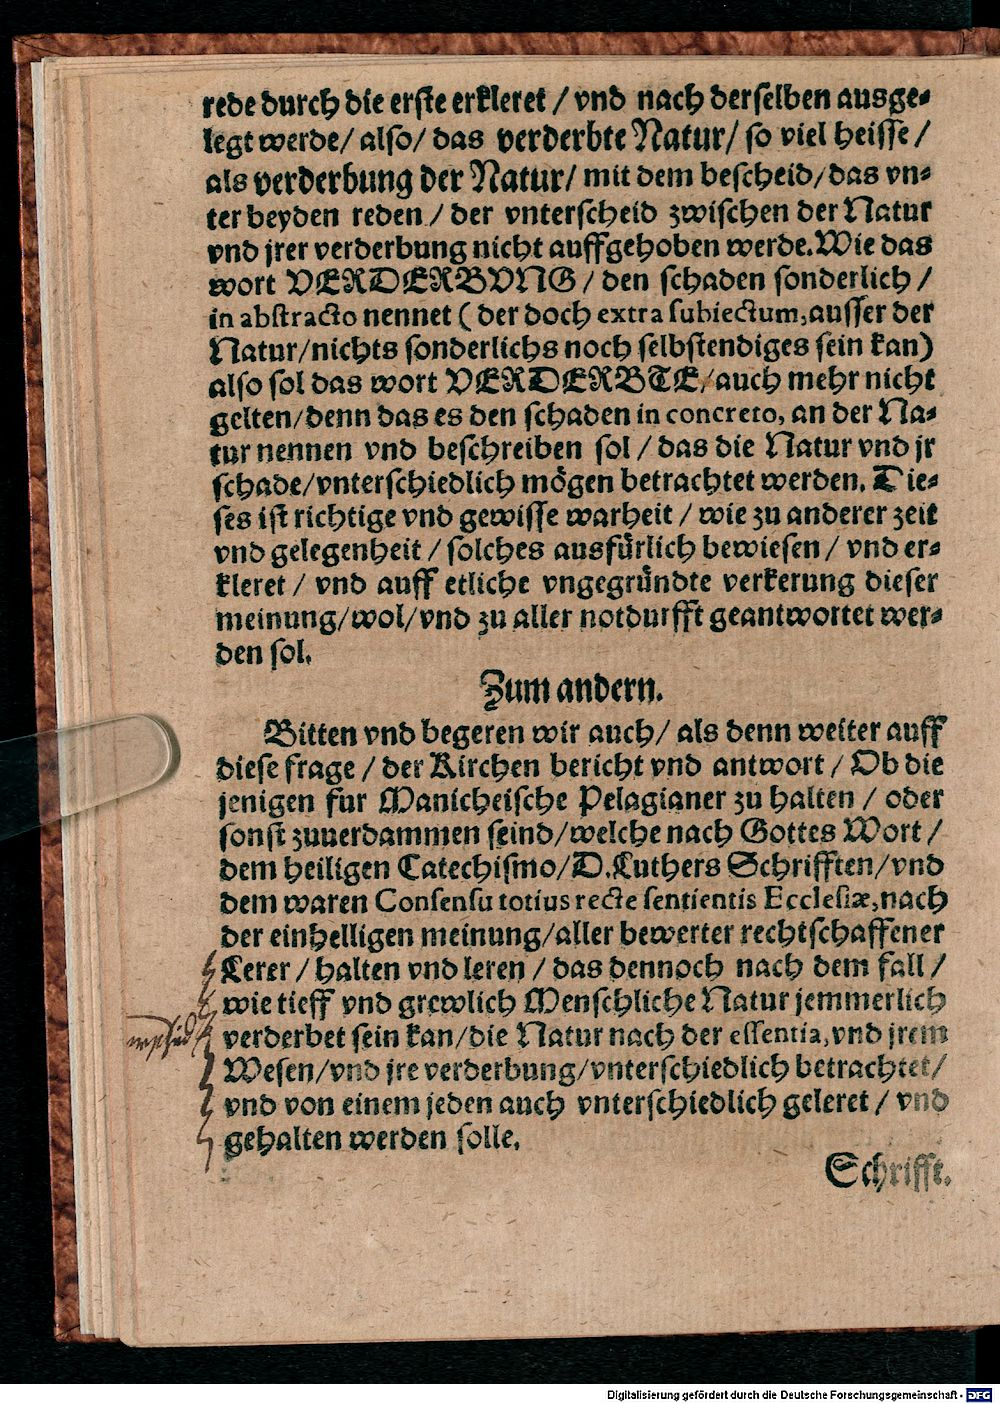 rede durch die erste erkleret / vnd nach derselben ausge-
legt werde / also / das verderbte Natur / so viel heisse /
als verderbung der Natur / mit dem bescheid / das vn-
ter beyden reden / der vnterscheid zwischen der Natur
vnd jrer verderbung nicht auffgehoben werde. Wie das
wort VERDERBVNG / den schaden sonderlich /
in abstracto nennet ( der doch extra subiectum, ausser der
Natur / nichts sonderlichs noch selbstendiges sein kan)
also sol das wort VERDERBTE / auch mehr nicht
gelten / denn das es den schaden in concreto, an der Na-
tur nennen vnd beschreiben sol / das die Natur vnd jr
schade / vnterschiedlich mögen betrachtet werden. Die-
ses ist richtige vnd gewisse warheit / wie zu anderer zeit
vnd gelegenheit / solches ausfürlich bewiesen / vnd er-
kleret / vnd auff etliche vngegründte verkerung dieser
meinung / wol / vnd zu aller notdurfft geantwortet wer-
den sol.
Zum andern.
Bitten vnd begeren wir auch / als denn weiter auff
diese frage / der Kirchen bericht vnd antwort / Ob die
jenigen fur Manicheische Pelagianer zu halten / oder
sonst zuuerdammen seind / welche nach Gottes Wort /
dem heiligen Catechismo / D. Luthers Schrifften / vnd
dem waren Consensu totius recte sentientis Ecclesiæ, nach
der einhelligen meinung / aller bewerter rechtschaffener
Lerer / halten vnd leren / das dennoch nach dem fall /
wie tieff vnd grewlich Menschliche Natur jemmerlich
verderbet sein kan / die Natur nach der essentia, vnd jrem
Wesen / vnd jre verderbung / vnterschiedlich betrachtet /
vnd von einem jeden auch vnterschiedlich geleret / vnd
gehalten werden solle.
Schrifft.
Digitalisierung gefördert durch die Deutsche Forschungsgemeinschaft - DFG